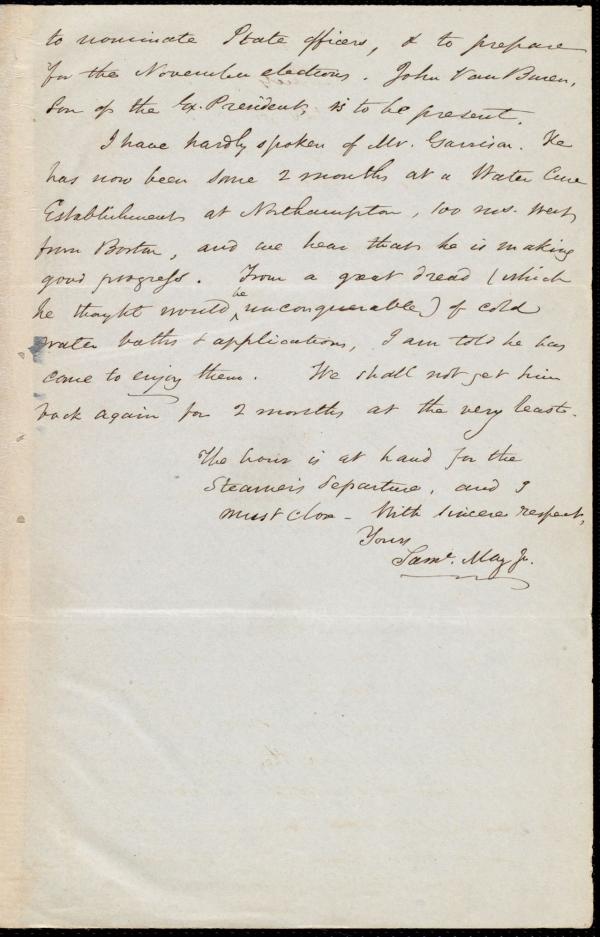 to nominate State officers, & to prepare
for the November elections. John Van Buren,
son of the Ex. President, is to be present.
I have hardly spoken of Mr. Garrison. He
has now been some 2 months at a Water Cure
Establishment at Northampton, 100 ms. west
from Boston, and we hear that he is making
good progress. From a great dread (which
he thought would be unconquerable) of cold
water baths & applications, I am told he has
come to enjoy them. We shall not get him
back again for 2 months at the very least.
The hour is at hand for the
Steamer's departure, and I
must close - With sincere respect,
Yours
Saml. May Jr.